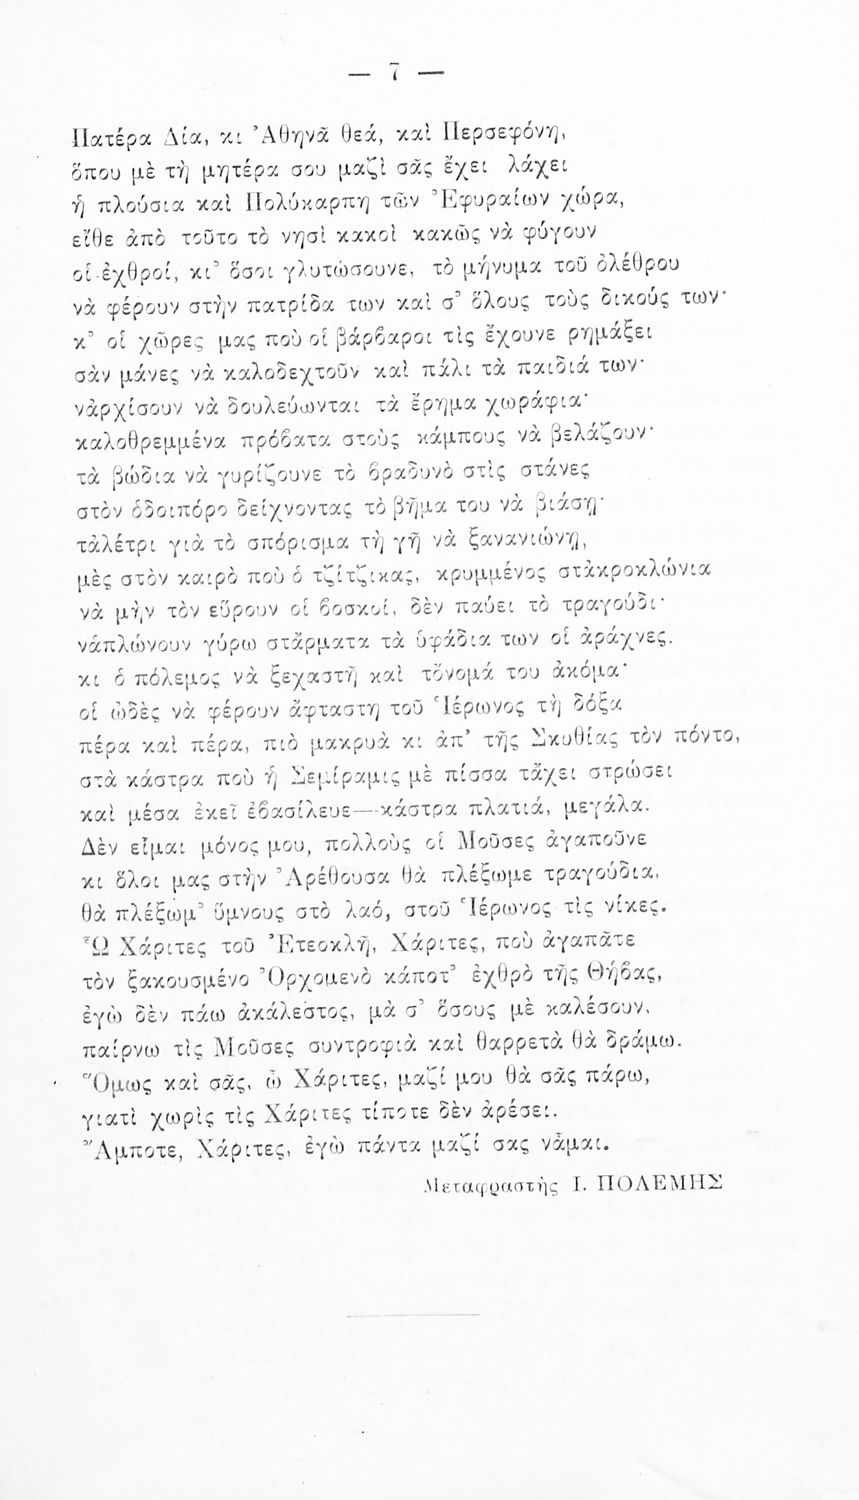 — 7 —
Πατέρα Δία, κι ᾽Αθηνᾶ θεά, καὶ Περσεφόνη,
ὅπου μὲ τὴ μητέρα σου μαζὶ σᾶς ἔχει λάχει
ἡ πλούσια καὶ Πολύκαρπη τῶν ᾽Εφυραίων χώρα,
εἴθε ἀπὸ τοῦτο τὸ νησὶ κακοὶ κακῶς νὰ φύγουν
οἱ ἐχθροί, κι᾽ ὅσοι γλυτώσουνε, τὸ μήνυμα τοῦ ὀλέθρου
νὰ φέρουν στὴν πατρίδα των καὶ σ᾽ ὅλους τοὺς δικούς των·
κ᾽ οἱ χῶρες μας ποὺ οἱ βάρβαροι τὶς ἔχουνε ρημάξει
σὰν μάνες νὰ καλοδεχτοῦν καὶ πάλι τὰ παιδιά των·
νἀρχίσουν νὰ δουλεύωνται τὰ ἔρημα χωράφια·
καλοθρεμμένα πρόβατα στοὺς κάμπους νὰ βελάζουν·
τὰ βώδια νὰ γυρίζουνε τὸ βραδυνὸ στὶς στάνες
στὸν ὁδοιπόρο δείχνοντας τὸ βῆμα του νὰ βιάσῃ·
τἀλέτρι γιὰ τὸ σπόρισμα τὴ γῆ νὰ ξανανιώνῃ,
μὲς στὸν καιρὸ ποὺ ὁ τζίτζικας, κρυμμένος στἀκροκλώνια
νὰ μὴν τὸν εὕρουν οἱ βοσκοί, δὲν παύει τὸ τραγούδι·
νἁπλώνουν γύρω στἄρματα τὰ ὑφάδια των οἱ ἀράχνες.
κι ὁ πόλεμος νὰ ξεχαστῆ καὶ τὄνομά του ἀκόμα·
οἱ ὠδὲς νὰ φέρουν ἄφταστη τοῦ Ἱέρωνος τὴ δόξα
πέρα καὶ πέρα, πιὸ μακρυὰ κι ἀπ᾽ τῆς Σκυθίας τὸν πόντο,
στὰ κάστρα ποὺ ἡ Σεμίραμις μὲ πίσσα τἄχει στρώσει
καὶ μέσα ἐκεῖ ἐβασίλευε—κάστρα πλατιά, μεγάλα.
Δὲν εἶμαι μόνος μου, πολλοὺς οἱ Μοῦσες ἀγαποῦνε
κι ὅλοι μας στὴν ᾽Αρέθουσα θὰ πλέξωμε τραγούδια,
θὰ πλέξωμ᾽ ὕμνους στὸ λαό, στοῦ Ἱέρωνος τὶς νίκες.
῏Ω Χάριτες τοῦ ᾽Ετεοκλῆ, Χάριτες, ποὺ ἀγαπᾶτε
τὸν ξακουσμένο ᾽Ορχομενὸ κάποτ᾽ ἐχθρὸ τῆς Θήβας,
ἐγὼ δὲν πάω ἀκάλεστος, μὰ σ᾽ ὅσους μὲ καλέσουν,
παίρνω τὶς Μοῦσες συντροφιὰ καὶ θαρρετὰ θὰ δράμω.
Ὅμως καὶ σᾶς, ὦ Χάριτες, μαζί μου θὰ σᾶς πάρω,
γιατὶ χωρὶς τὶς Χάριτες τίποτε δὲν ἀρέσει.
Ἄμποτε, Χάριτες, ἐγὼ πάντα μαζί σας νἆμαι.
Μεταφραστὴς Ι. ΠΟΛΕΜΗΣ